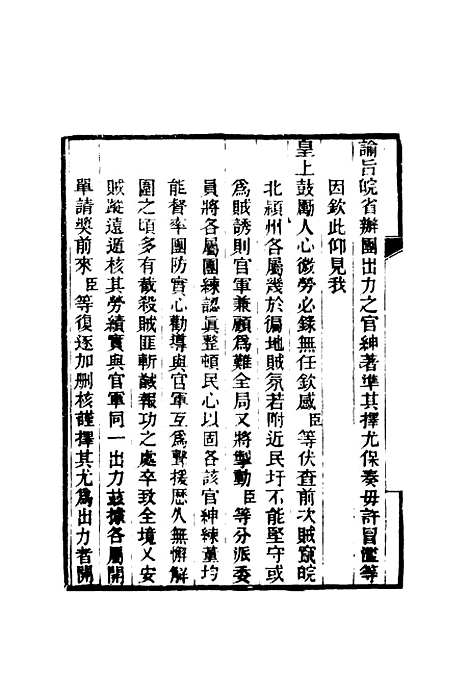 諭旨皖省辦團出力之官紳著準其擇尤保奏毋許冒濫等
因欽此仰見我
皇上鼓勵人心微勞必錄無任欽感臣等伏查前次賊竄皖
北潁州各屬幾於徧地賊氛若附近民圩不能堅守或
爲賊誘則官軍兼顧爲難全局又將掣動臣等分派委
員將各屬團練認眞整頓民心以固各該官紳練董均
能督率團防實心勸導與官軍互爲聲援歷久無懈解
圍之頃多有截殺賊匪斬馘報功之處卒致全境乂安
賊蹤遠遁核其勞績實與官軍同一出力茲據各屬開
單請獎前來臣等復逐加刪核謹擇其尤爲出力者開